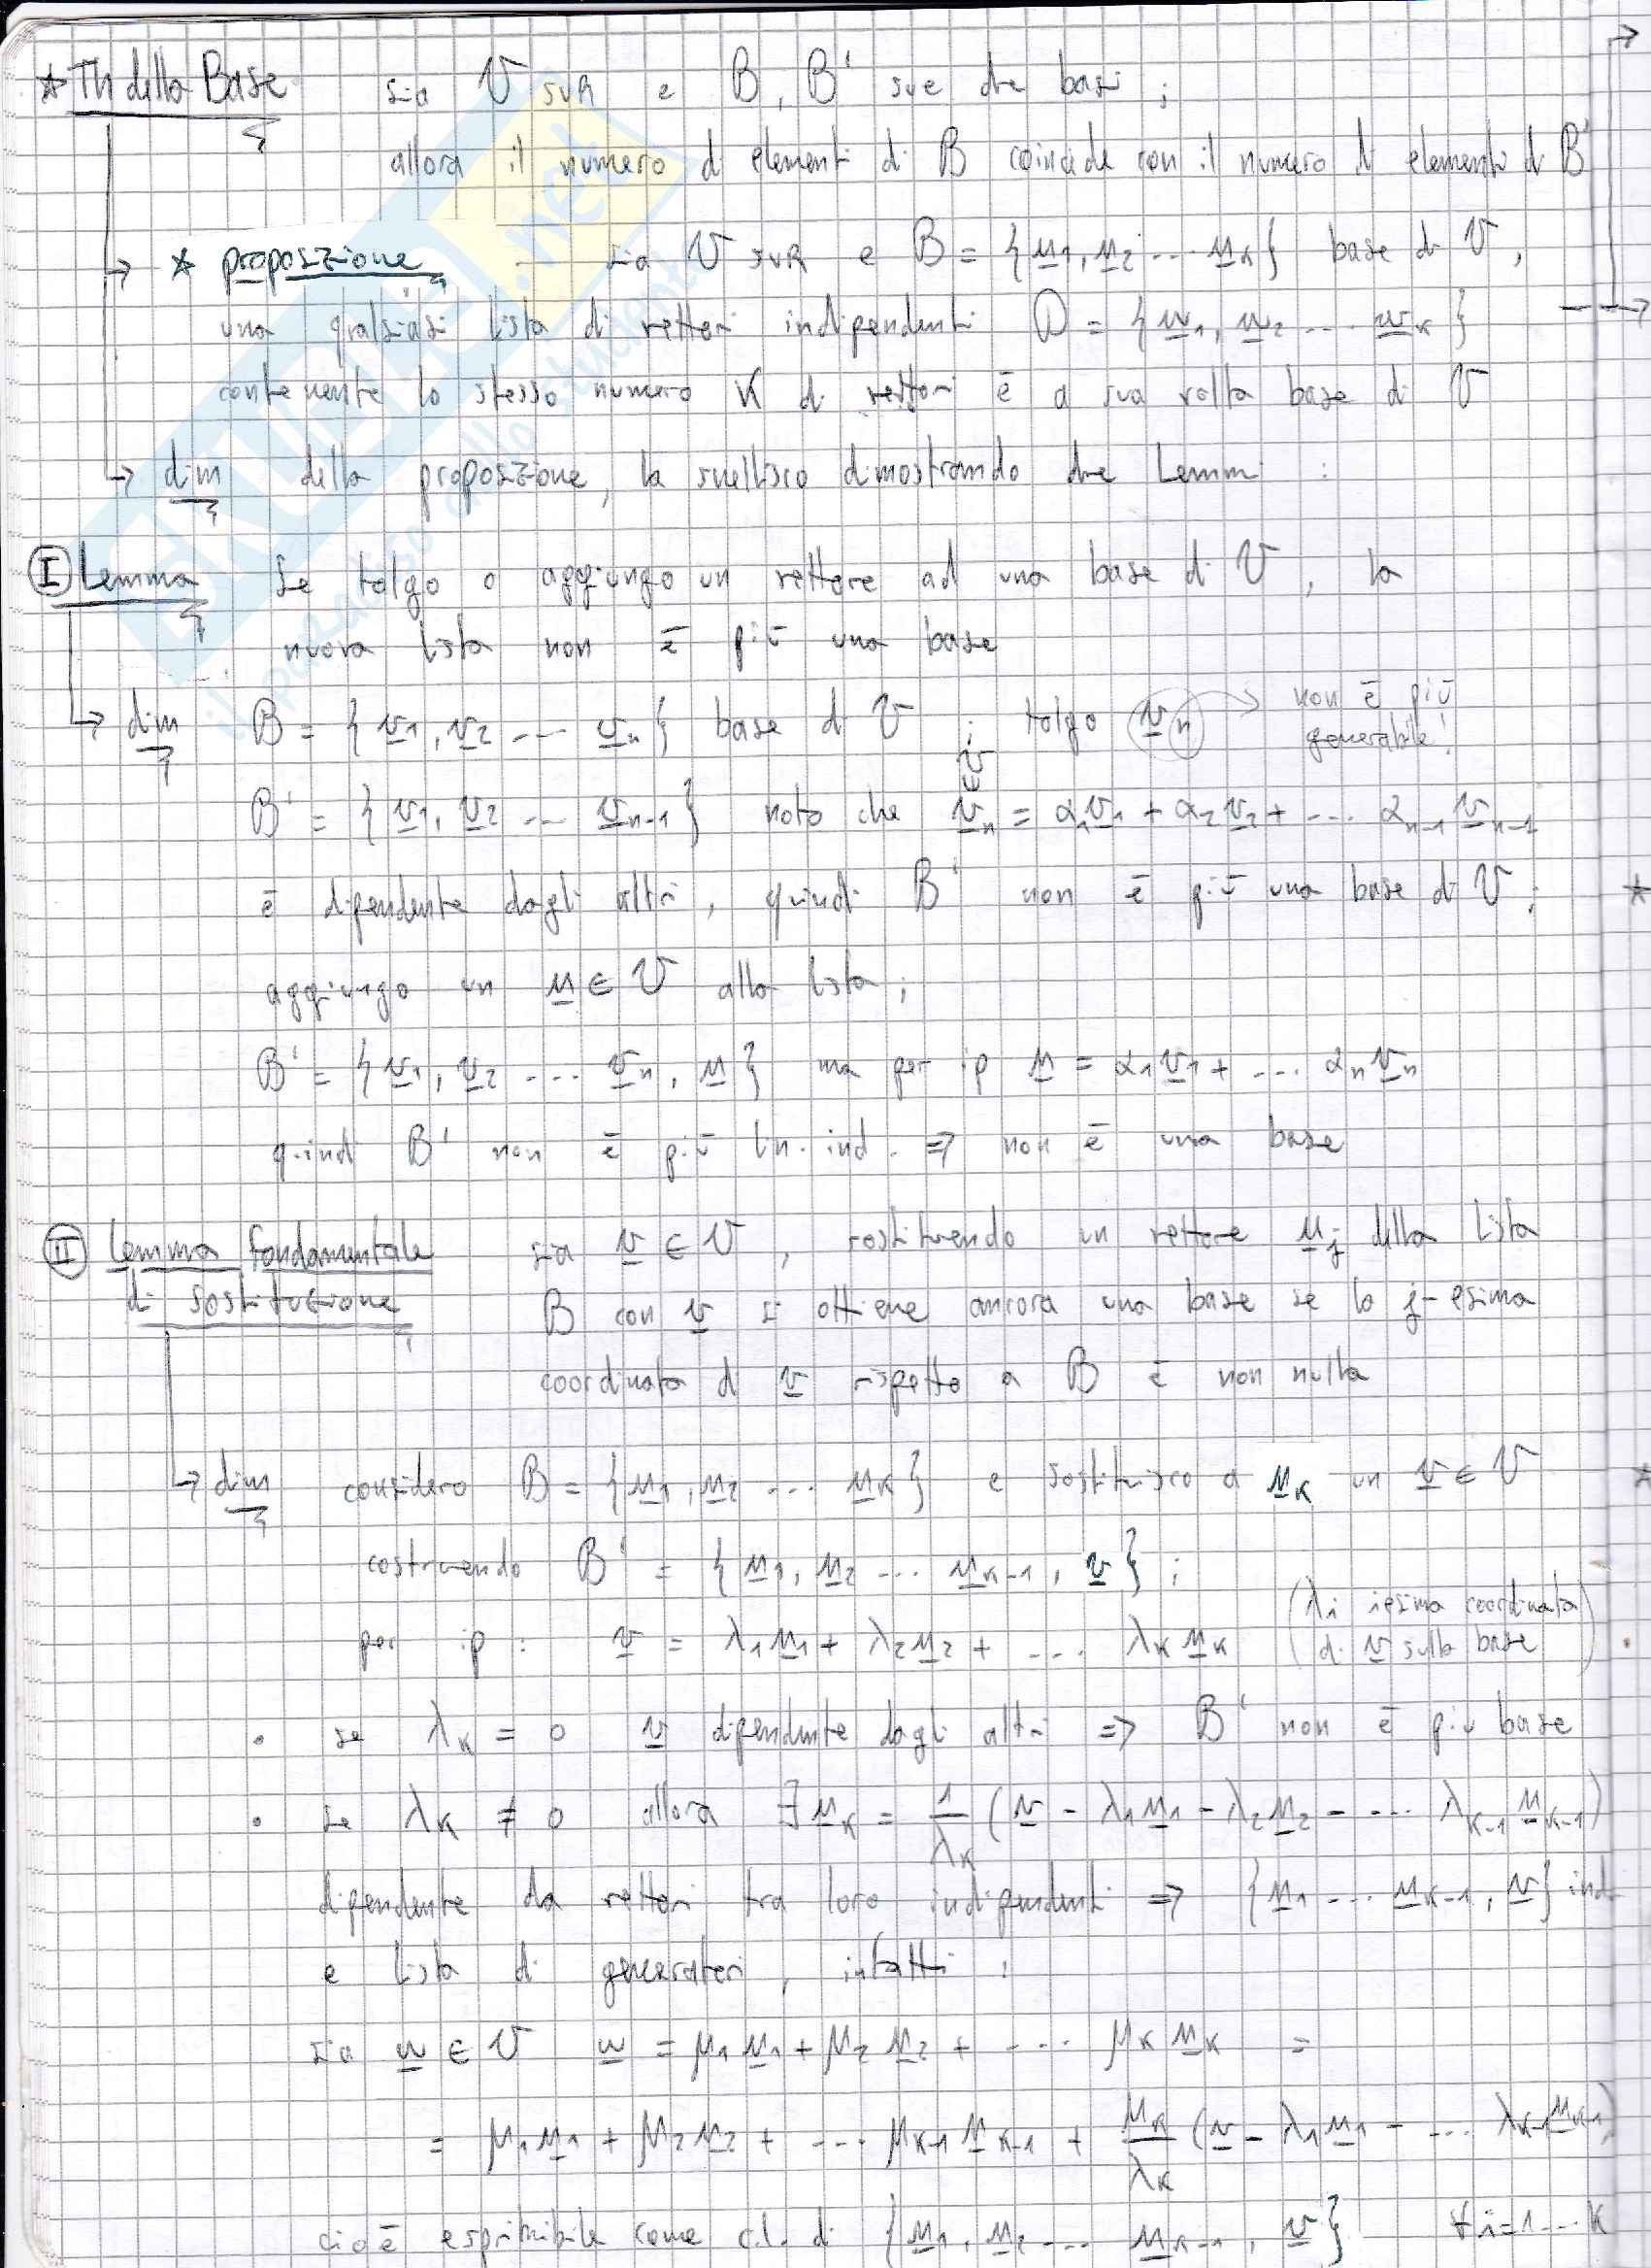 * Th della Base sia V SVR e B, B' sue due basi ;
allora il numero di elementi di B coincide con il numero di elementi di B'
* proposizione sia V SVR e B = {u1, u2 ... uk} base di V,
una qualsiasi lista di vettori indipendenti D = {w1, w2 ... wk}
contenente lo stesso numero K di vettori è a sua volta base di V
dim della proposizione, la snellisco dimostrando due Lemmi :
I Lemma Se tolgo o aggiungo un vettore ad una base di V, la
nuova lista non è più una base
dim B = {v1, v2 ... vn} base di V ; tolgo vn → non è più
generabile!
B' = {v1, v2 ... vn-1} noto che vn = α1v1 + α2v2 + ... αn-1 vn-1
è dipendente dagli altri, quindi B' non è più una base di V ;
aggiungo un u ∈ V alla lista ;
B' = {v1, v2 ... vn, u} ma per ip u = α1v1 + ... αnvn
quindi B' non è più lin. ind. ⇒ non è una base
II Lemma fondamentale sia v ∈ V, sostituendo un vettore uj della lista
di sostituzione B con v si ottiene ancora una base se la j-esima
coordinata di v rispetto a B è non nulla
dim considero B = {u1, u2 ... uk} e sostituisco a uk un v ∈ V
costruendo B' = {u1, u2 ... uk-1, v} ;
per ip : v = λ1u1 + λ2u2 + ... λkuk (λi iesima coordinata
di v sulla base)
• se λk = 0 v dipendente dagli altri ⇒ B' non è più base
• se λk ≠ 0 allora ∃ uk = 1/λk (v - λ1u1 - λ2u2 - ... λk-1 uk-1)
dipendente da vettori tra loro indipendenti ⇒ {u1 ... uk-1, v} ind.
e lista di generatori, infatti :
sia w ∈ V w = μ1u1 + μ2u2 + ... μkuk =
= μ1u1 + μ2u2 + ... μk-1uk-1 + μk/λk (v - λ1u1 - ... λk-1uk-1)
cioè esprimibile come c.l. di {u1, u2 ... uk-1, v} ∀ i=1...k